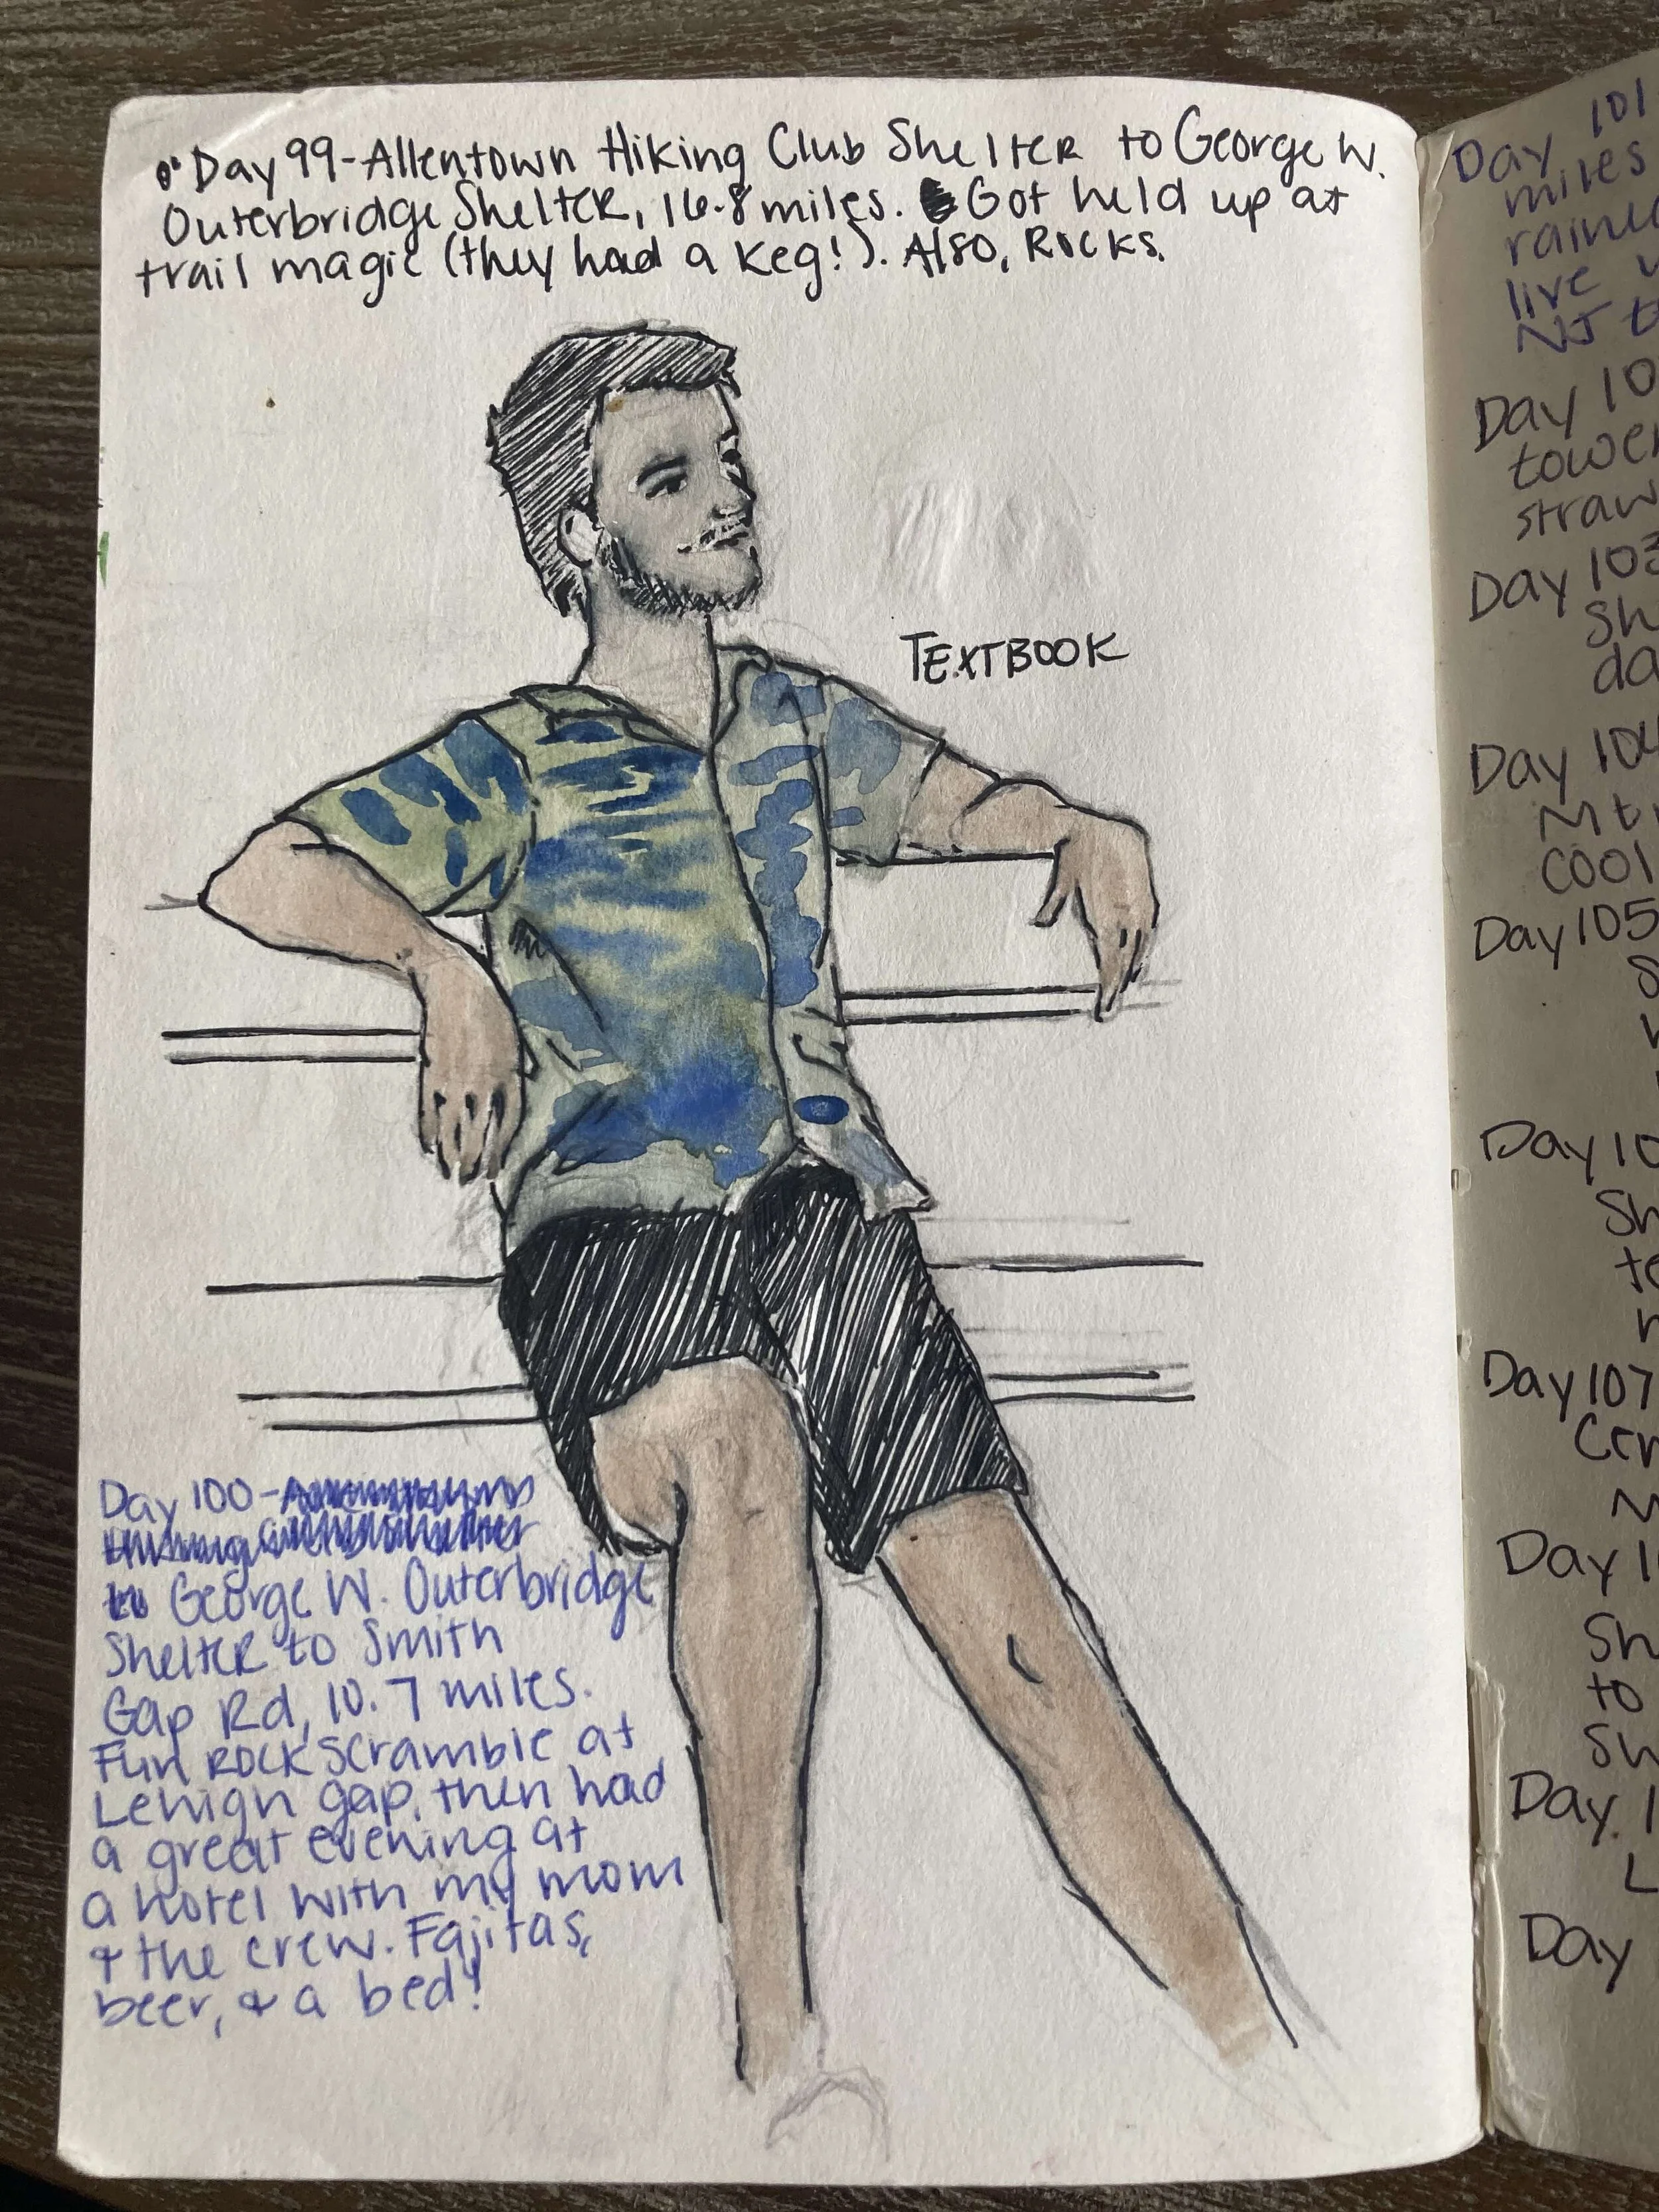 Day 99-Allentown Hiking Club Shelter to George W.
Outerbridge Shelter, 16.8 miles. Got held up at
trail magic (they had a keg!). Also, Rocks.
TEXTBOOK
Day 100-
George W. Outerbridge
Shelter to Smith
Gap Rd, 10.7 miles.
Fun rock scramble at
Lehigh gap, then had
a great evening at
a hotel with my mom
& the crew. Fajitas,
beer, & a bed!
Day 101
miles
live
NJ
Day 10
Day 103
Sh
da
Day 104
Mt
COOL
Day 105
S
Day 10
Sh
te
Day 107
Day 1
Sh
to
Sh
Day 1
L
Day